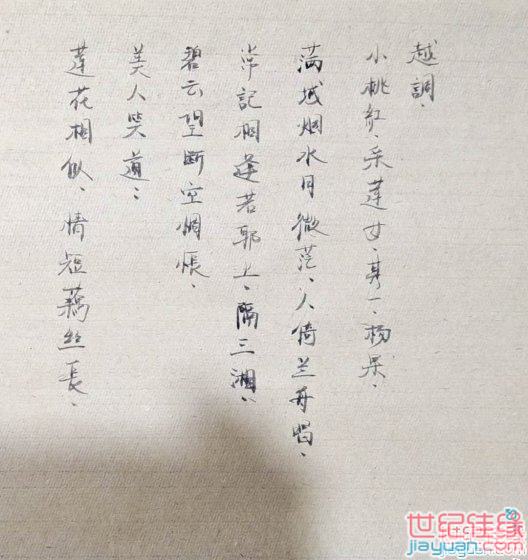 越調、
小桃紅、采莲女、其一、杨果、
满城烟水月微茫、人倚兰舟唱、
常記相逢若耶上、隔三湘、
碧云望断空惆悵、
美人笑道：
莲花相似、情短藕丝長、
世纪佳缘
jiayuan.com